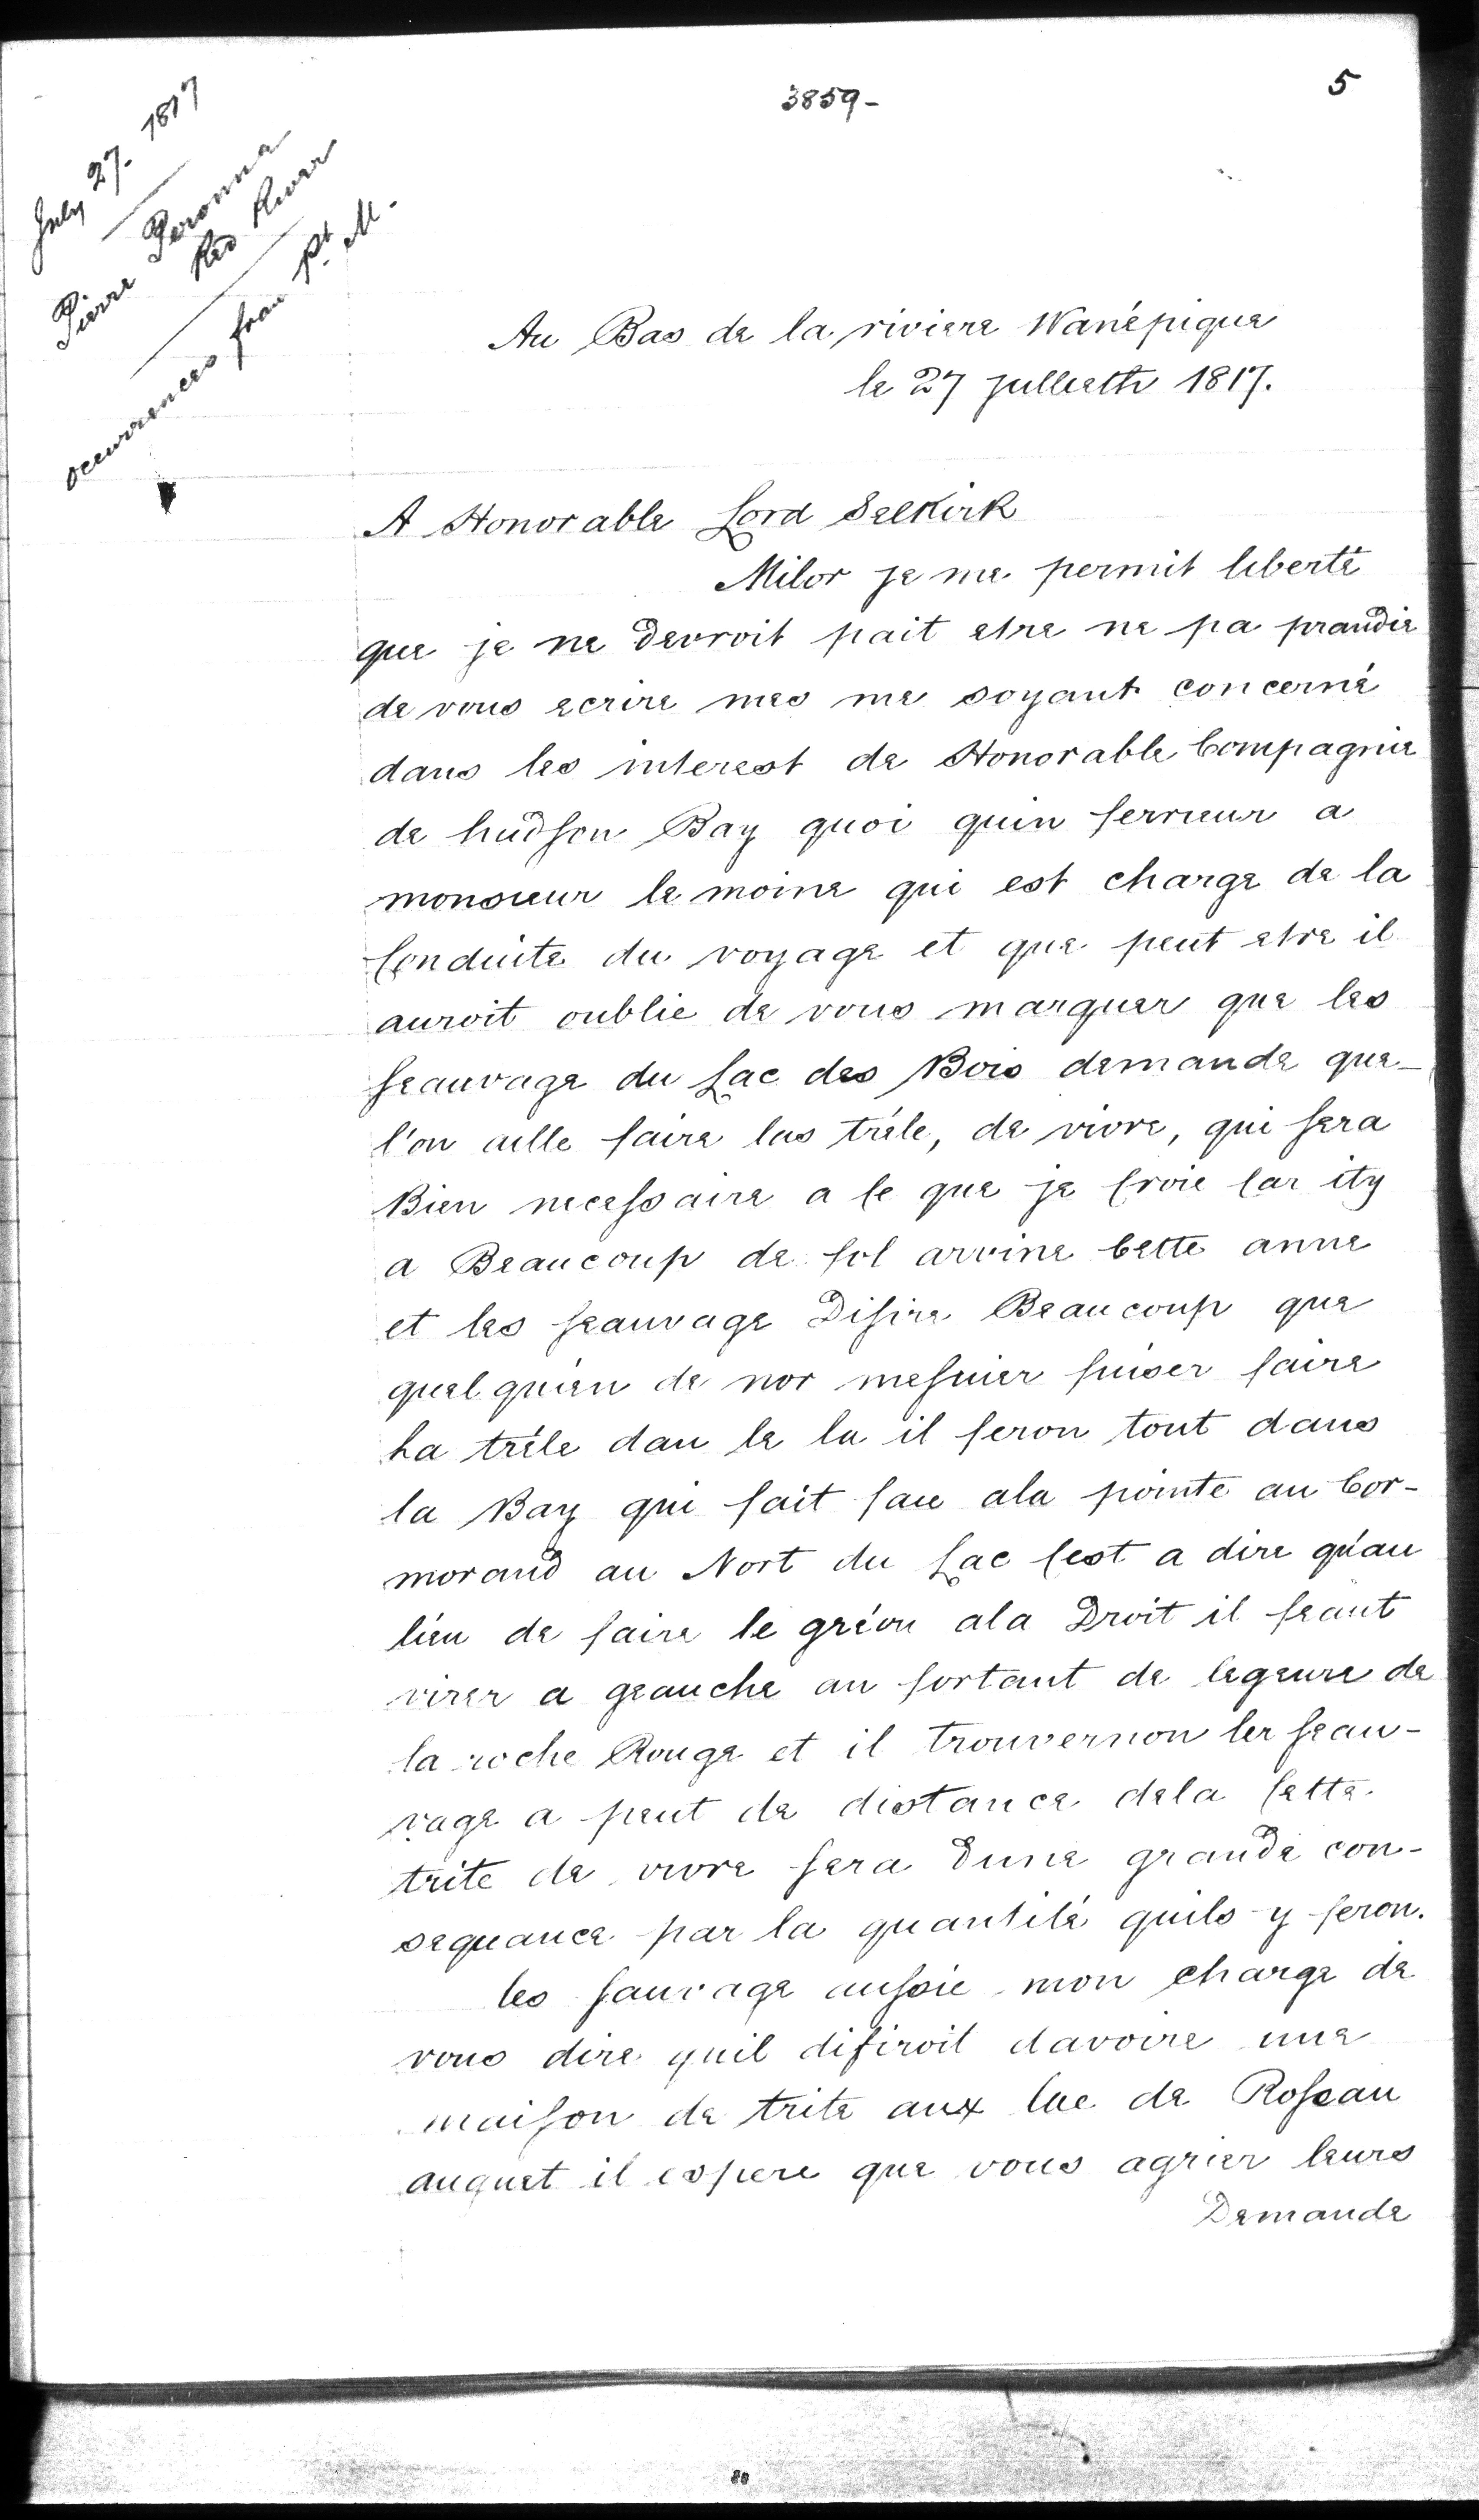 3859-
5
July 27. 1817
Pierre Peronna
Red River
occurrences from Pt. M.
Au Bas de la riviere Wanépique
le 27 Julleath 1817.
A Honorable Lord Selkirk
Milor je me permit liberté
que je ne devroit pait etre ne pa prandie
de vous ecrire mes me soyant concerné
dans les interest de Honorable Compagnie
de hudson Bay quoi quin ferrieur a
monsieur le moine qui est charge de la
Conduite du voyage et que peut etre il
auroit oublie de vous marquer que les
seauvage du Lac des Bois demande que
l'on aille faire las tréle, de vivre, qui sera
Bien necessaire a ce que je Croie Car ity
a Beaucoup de fol arvine Cette anne
et les seauvage Disire Beaucoup que
quel qu'ien de nor mesuier suiser faire
La tréle dan le la il seron tout dans
la Bay qui fait face ala pointe au Cor-
morand au Nort du Lac Cest a dire qu'au
lieu de faire le gréou ala Droit il feaut
virer a geauche an sortant de legeure de
la roche Rouge et il trouvernon ler seau-
vage a peut de distance dela Cette
trite de vivre sera dune grande con-
sequance par la quantité quils y seron.
les sauvage aussie mon charge de
vous dire quil disiroit davoire une
maison de trite aux lac de Roseau
auquet il espere que vous agrier leurs
Demande